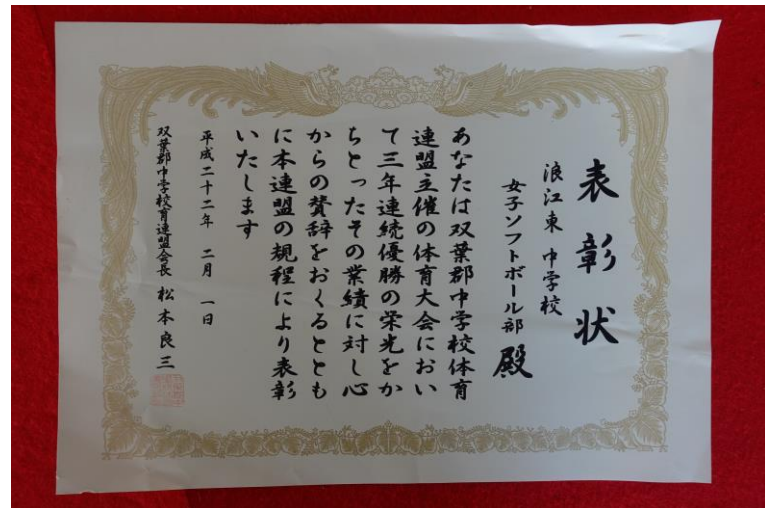 表彰状
浪江東中学校
女子ソフトボール部殿
あなたは双葉郡中学校体育
連盟主催の体育大会におい
て三年連続優勝の栄光をか
ちとったその業績に対し心
からの賛辞をおくるととも
に本連盟の規程により表彰
いたします
平成二十二年 二月 一日
双葉郡中学校体育連盟会長 松本良三